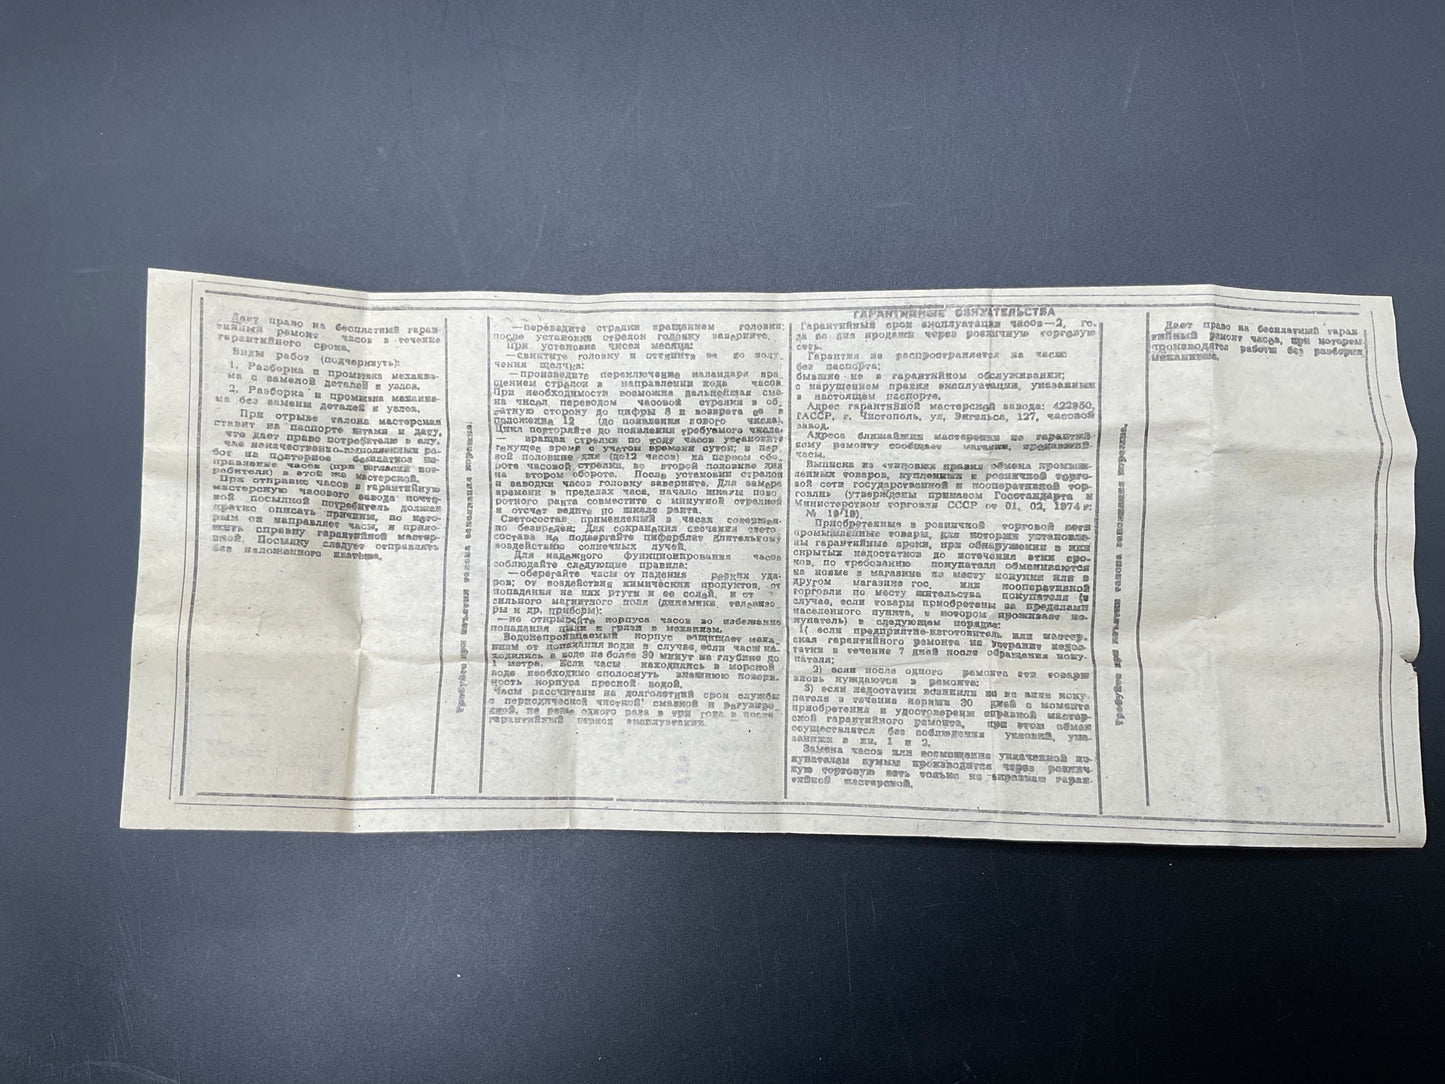 Дает право на бесплатный гаран-
тийный ремонт часов в течение
гарантийного срока.
Виды работ (подчеркнуть):
1. Разборка и промывка механиз-
ма с заменой деталей и узлов.
2. Разборка и промывка механиз-
ма без замены деталей и узлов.
При отрыве талона мастерская
ставит на паспорте штамп и дату,
что дает право потребителю в слу-
чае некачественно-выполненных ра-
бот на повторное бесплатное
правление часов (при согласии пот-
ребителя) в этой же мастерской.
При отправке часов в гарантийную
мастерскую часового завода почто-
вой посылкой потребитель должен
кратко описать причины, по кото-
рым он направляет часы, и прило-
жить справку гарантийной мастер-
ской. Посылку следует отправлять
без наложенного платежа.
Требуйте при изъятии талона заполнения корешка.
—переведите стрелки вращением головки;
после установки стрелок головку заверните.
При установке чисел месяца:
—свинтите головку и оттяните ее до полу-
чения щелчка;
—произведите переключение календаря вра-
щением стрелок в направлении хода часов.
При необходимости возможна дальнейшая сме-
на чисел переводом часовой стрелки в об-
ратную сторону до цифры 8 и возврата ее в
положение 12 (до появления нового числа).
Цикл повторяйте до появления требуемого числа.
— вращая стрелки по ходу часов установите
текущее время с учетом времени суток; в пер-
вой половине дня (до12 часов) на первом обо-
роте часовой стрелки, во второй половине дня
на втором обороте. После установки стрелок
и заводки часов головку заверните. Для замера
времени в пределах часа, начало шкалы пово-
ротного ранта совместите с минутной стрелкой
и отсчет ведите по шкале ранта.
Светосостав применяемый в часах совершен-
но безвреден; Для сохранения свечения свето-
состава не подвергайте циферблат длительному
воздействию солнечных лучей.
Для надежного функционирования часов
соблюдайте следующие правила:
—оберегайте часы от падения резких уда-
ров; от воздействия химических продуктов, от
попадания на них ртути и ее солей, и от
сильного магнитного поля (динамики, телевизо-
ры и др. приборы);
—не открывайте корпуса часов во избежание
попадания пыли и грязи в механизм.
Водонепроницаемый корпус защищает меха-
низм от попадания воды в случае, если часы на-
ходились в воде не более 30 минут на глубине до
1 метра. Если часы находились в морской
воде необходимо сполоснуть внешнюю поверх-
ность корпуса пресной водой.
Часы рассчитаны на долголетний срок службы
с периодической чисткой смазкой и регулиров-
кой, не реже одного раза в три года в после-
гарантийный период эксплуатации.
ГАРАНТИЙНЫЕ ОБЯЗАТЕЛЬСТВА
Гарантийный срок эксплуатации часов—2, го-
да со дня продажи через розничную торговую
сеть.
Гарантия не распространяется на часы
без паспорта;
бывшие не в гарантийном обслуживании;
с нарушением правил эксплуатации, указанных
в настоящем паспорте.
Адрес гарантийной мастерской завода: 422950,
ТАССР, г. Чистополь, ул. Энгельса, 127, часовой
завод.
Адреса ближайших мастерских по гарантий-
ному ремонту сообщает магазин, продавший
часы.
Выписка из «типовых правил обмена промыш-
ленных товаров, купленных в розничной торго-
вой сети государственной и кооперативной тор-
говли» (утверждены приказом Госстандарта и
Министерством торговли СССР от 01. 02, 1974 г:
№ 19/18).
Приобретенные в розничной торговой сети
промышленные товары, для которых установле-
ны гарантийные сроки, при обнаружении в них
скрытых недостатков до истечения этих сро-
ков, по требованию покупателя обмениваются
на новые в магазине по месту покупки или в
другом магазине гос. или кооперативной
торговли по месту жительства покупателя (в
случае, если товары приобретены за пределами
населенного пункта, в котором проживает по-
купатель) в следующем порядке:
1( если предприятие-изготовитель или мастер-
ская гарантийного ремонта не устранит недос-
татки в течение 7 дней после обращения поку-
пателя;
2) если после одного ремонта эти товары
вновь нуждаются в ремонте;
3) если недостатки возникли не по вине поку-
пателя в течение первых 30 дней с момента
приобретения и удостоверены справкой мастер-
ской гарантийного ремонта, при этом обмен
осуществляется без соблюдения условий, ука-
занных в пп. 1 и 2.
Замена часов или возмещение уплаченной по-
купателем суммы производится через рознич-
ную торговую сеть только по справкам гаран-
тийной мастерской.
Требуйте при изъятии талона заполнения корешка.
Дает право на бесплатный гаран-
тийный ремонт часов, при котором
производятся работы без разборки
механизма.